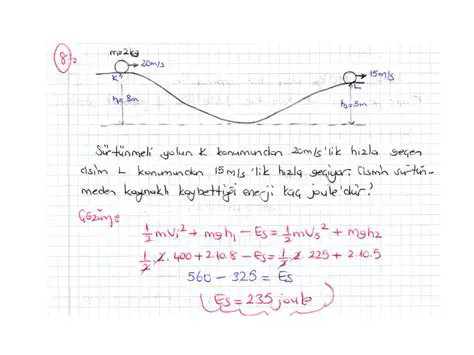 8)
m=2kg
20m/s
K
h₁=8m
15m/s
L
h₂=5m
Sürtünmeli yolun K konumundan 20m/s'lik hızla geçen
cisim L konumundan 15m/s'lik hızla geçiyor. Cismin sürtün-
meden kaynaklı kaybettiği enerji kaç joule'dür?
Çözüm:
1/2 mV₁² + mgh₁ − Es = 1/2 mVs² + mgh₂
1/2 . 2 . 400 + 2.10.8 − Es = 1/2 . 2 . 225 + 2.10.5
560 − 325 = Es
Es = 235 joule